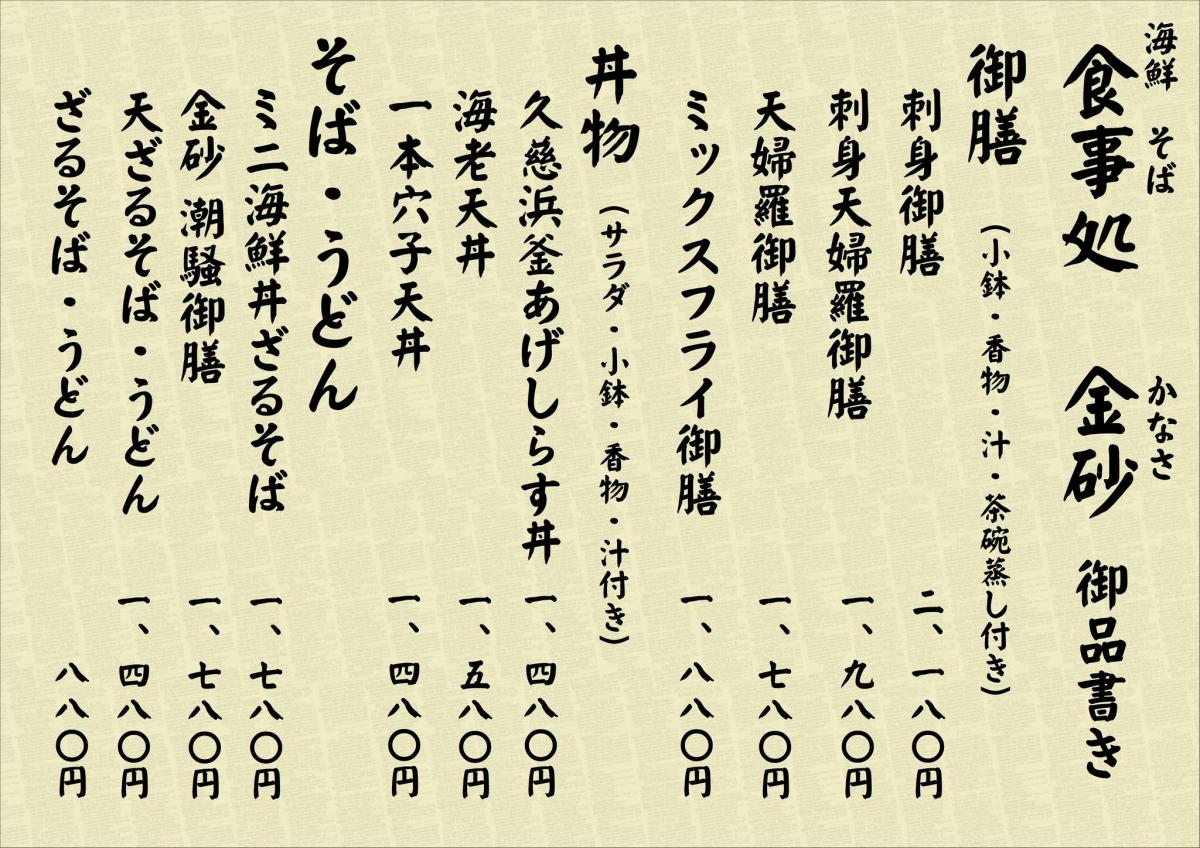 海鮮 そば かなさ
食事処 金砂 御品書き
御膳 (小鉢・香物・汁・茶碗蒸し付き)
刺身御膳 二、一八〇円
刺身天婦羅御膳 一、九八〇円
天婦羅御膳 一、七八〇円
ミックスフライ御膳 一、八八〇円
丼物 (サラダ・小鉢・香物・汁付き)
久慈浜釜あげしらす丼 一、四八〇円
海老天丼 一、五八〇円
一本穴子天丼 一、四八〇円
そば・うどん
ミニ海鮮丼ざるそば 一、七八〇円
金砂 潮騒御膳 一、七八〇円
天ざるそば・うどん 一、四八〇円
ざるそば・うどん 八八〇円